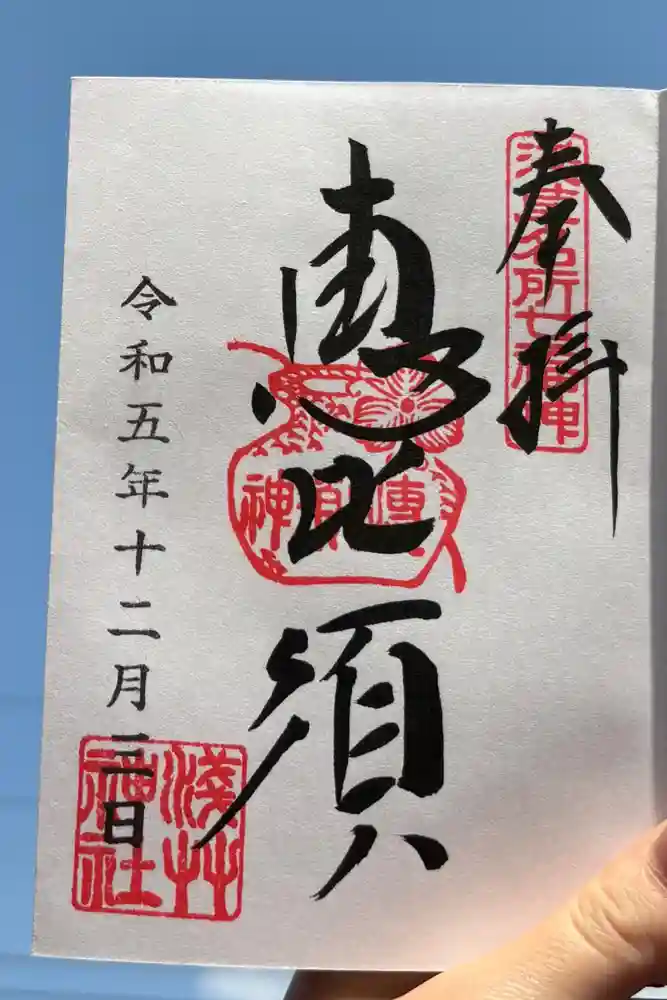 奉拝
浅草名所七福神
惠比須
令和五年十二月三日
淺艸
神社